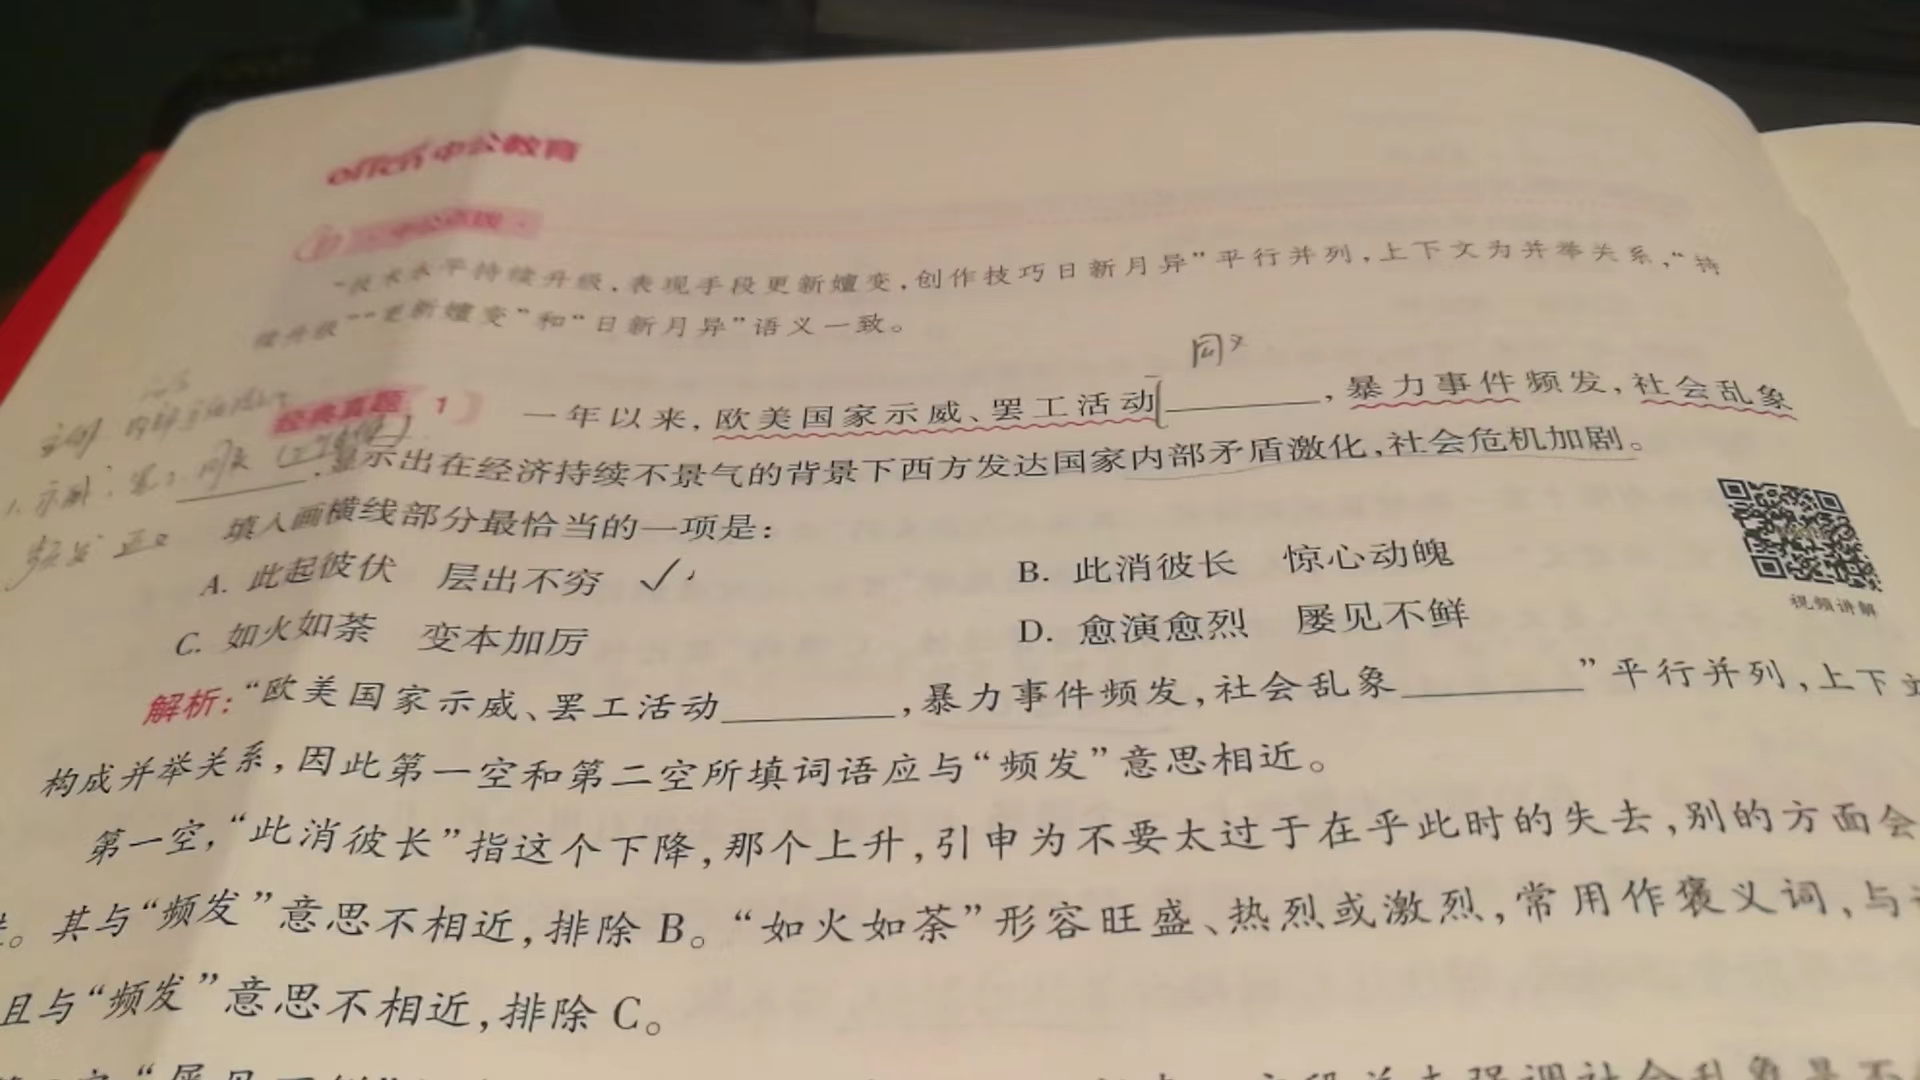 offcn中公教育
·中公点拨·
“技术水平持续升级,表现手段更新嬗变,创作技巧日新月异”平行并列,上下文为并举关系,“持
续升级”“更新嬗变”和“日新月异”语义一致。
同义
经典真题 1 一年以来,欧美国家示威、罢工活动________,暴力事件频发,社会乱象
________,显示出在经济持续不景气的背景下西方发达国家内部矛盾激化,社会危机加剧。
填入画横线部分最恰当的一项是:
A. 此起彼伏 层出不穷 ✓
B. 此消彼长 惊心动魄
C. 如火如荼 变本加厉
D. 愈演愈烈 屡见不鲜
视频讲解
解析:“欧美国家示威、罢工活动________,暴力事件频发,社会乱象________”平行并列,上下文
构成并举关系,因此第一空和第二空所填词语应与“频发”意思相近。
第一空,“此消彼长”指这个下降,那个上升,引申为不要太过于在乎此时的失去,别的方面会
。其与“频发”意思不相近,排除 B。“如火如荼”形容旺盛、热烈或激烈,常用作褒义词,与
且与“频发”意思不相近,排除 C。